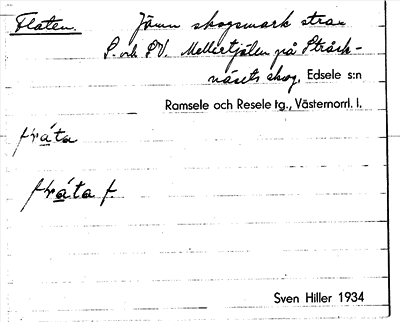 Flaten. Jämn skogsmark strax
S. och SV. Mellertjälen på Stråk-
näsets skog, Edsele s:n
Ramsele och Resele tg., Västernorrl. l.
flȧta
flȧta f.
Sven Hiller 1934